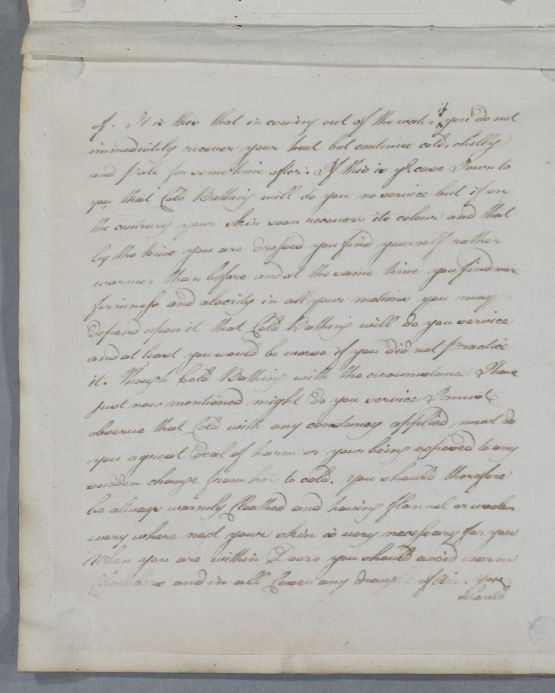 of. It is this that in coming out of the water if you do not
immediately recover your heat but continue cold, chilly
and pale for some time after. If this is yr. case I own to
you that Cold Bathing will do you no service but if on
the contrary your skin soon recovers its colour and that
by the time you are dressed you find yourself rather
warmer than before and at the same time you find more
firmness and alacrity in all your motions you may
depend upon it that Cold Bathing will do you service
and at least you would be worse if you did not practice
it. Though Cold Bathing with the circumstances I have
just now mentioned might do you service I must
observe that Cold with any constancy applied must do
you a great deal of harm or your being exposed to any
sudden change from hot to cold. You should therefore
be always warmly Cloathed and having flannel or woolen
every where next your skin is very necessary for you
When you are within Doors you should avoid warm
Chambers and in all Cases any draught of Air. You
should